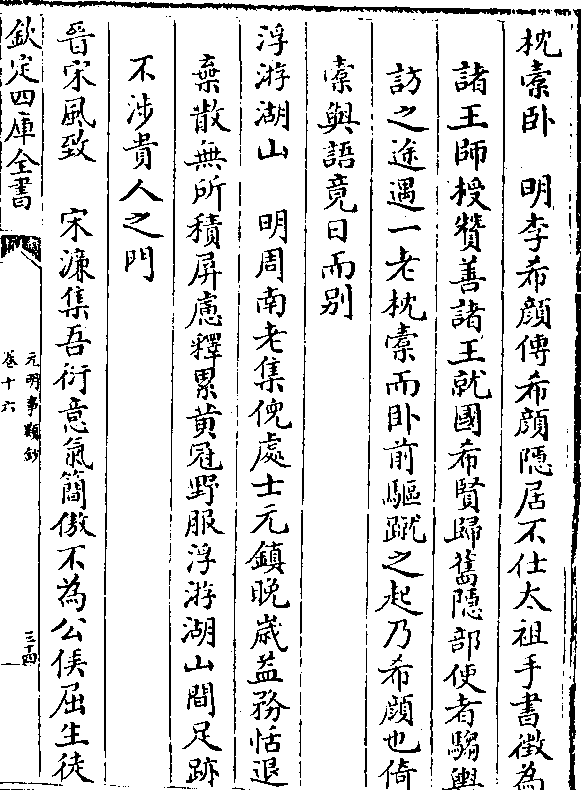 枕橐卧　明李希顔傳希顔隠居不仕太祖手書徵為
諸王師授贊善諸王就國希賢歸舊隠部使者騶輿
訪之途遇一老枕橐而卧前驅蹴之起乃希顔也倚
橐與語竟日而别
浮游湖山　明周南老集倪處士元鎮晚歳益務恬退
棄散無所積屏慮釋累黄冠野服浮游湖山間足跡
不涉貴人之門
晉宋風致　宋濂集吾衍意氣簡傲不為公侯屈生徒
欽定四庫全書
元明事類鈔
卷十六
三十四